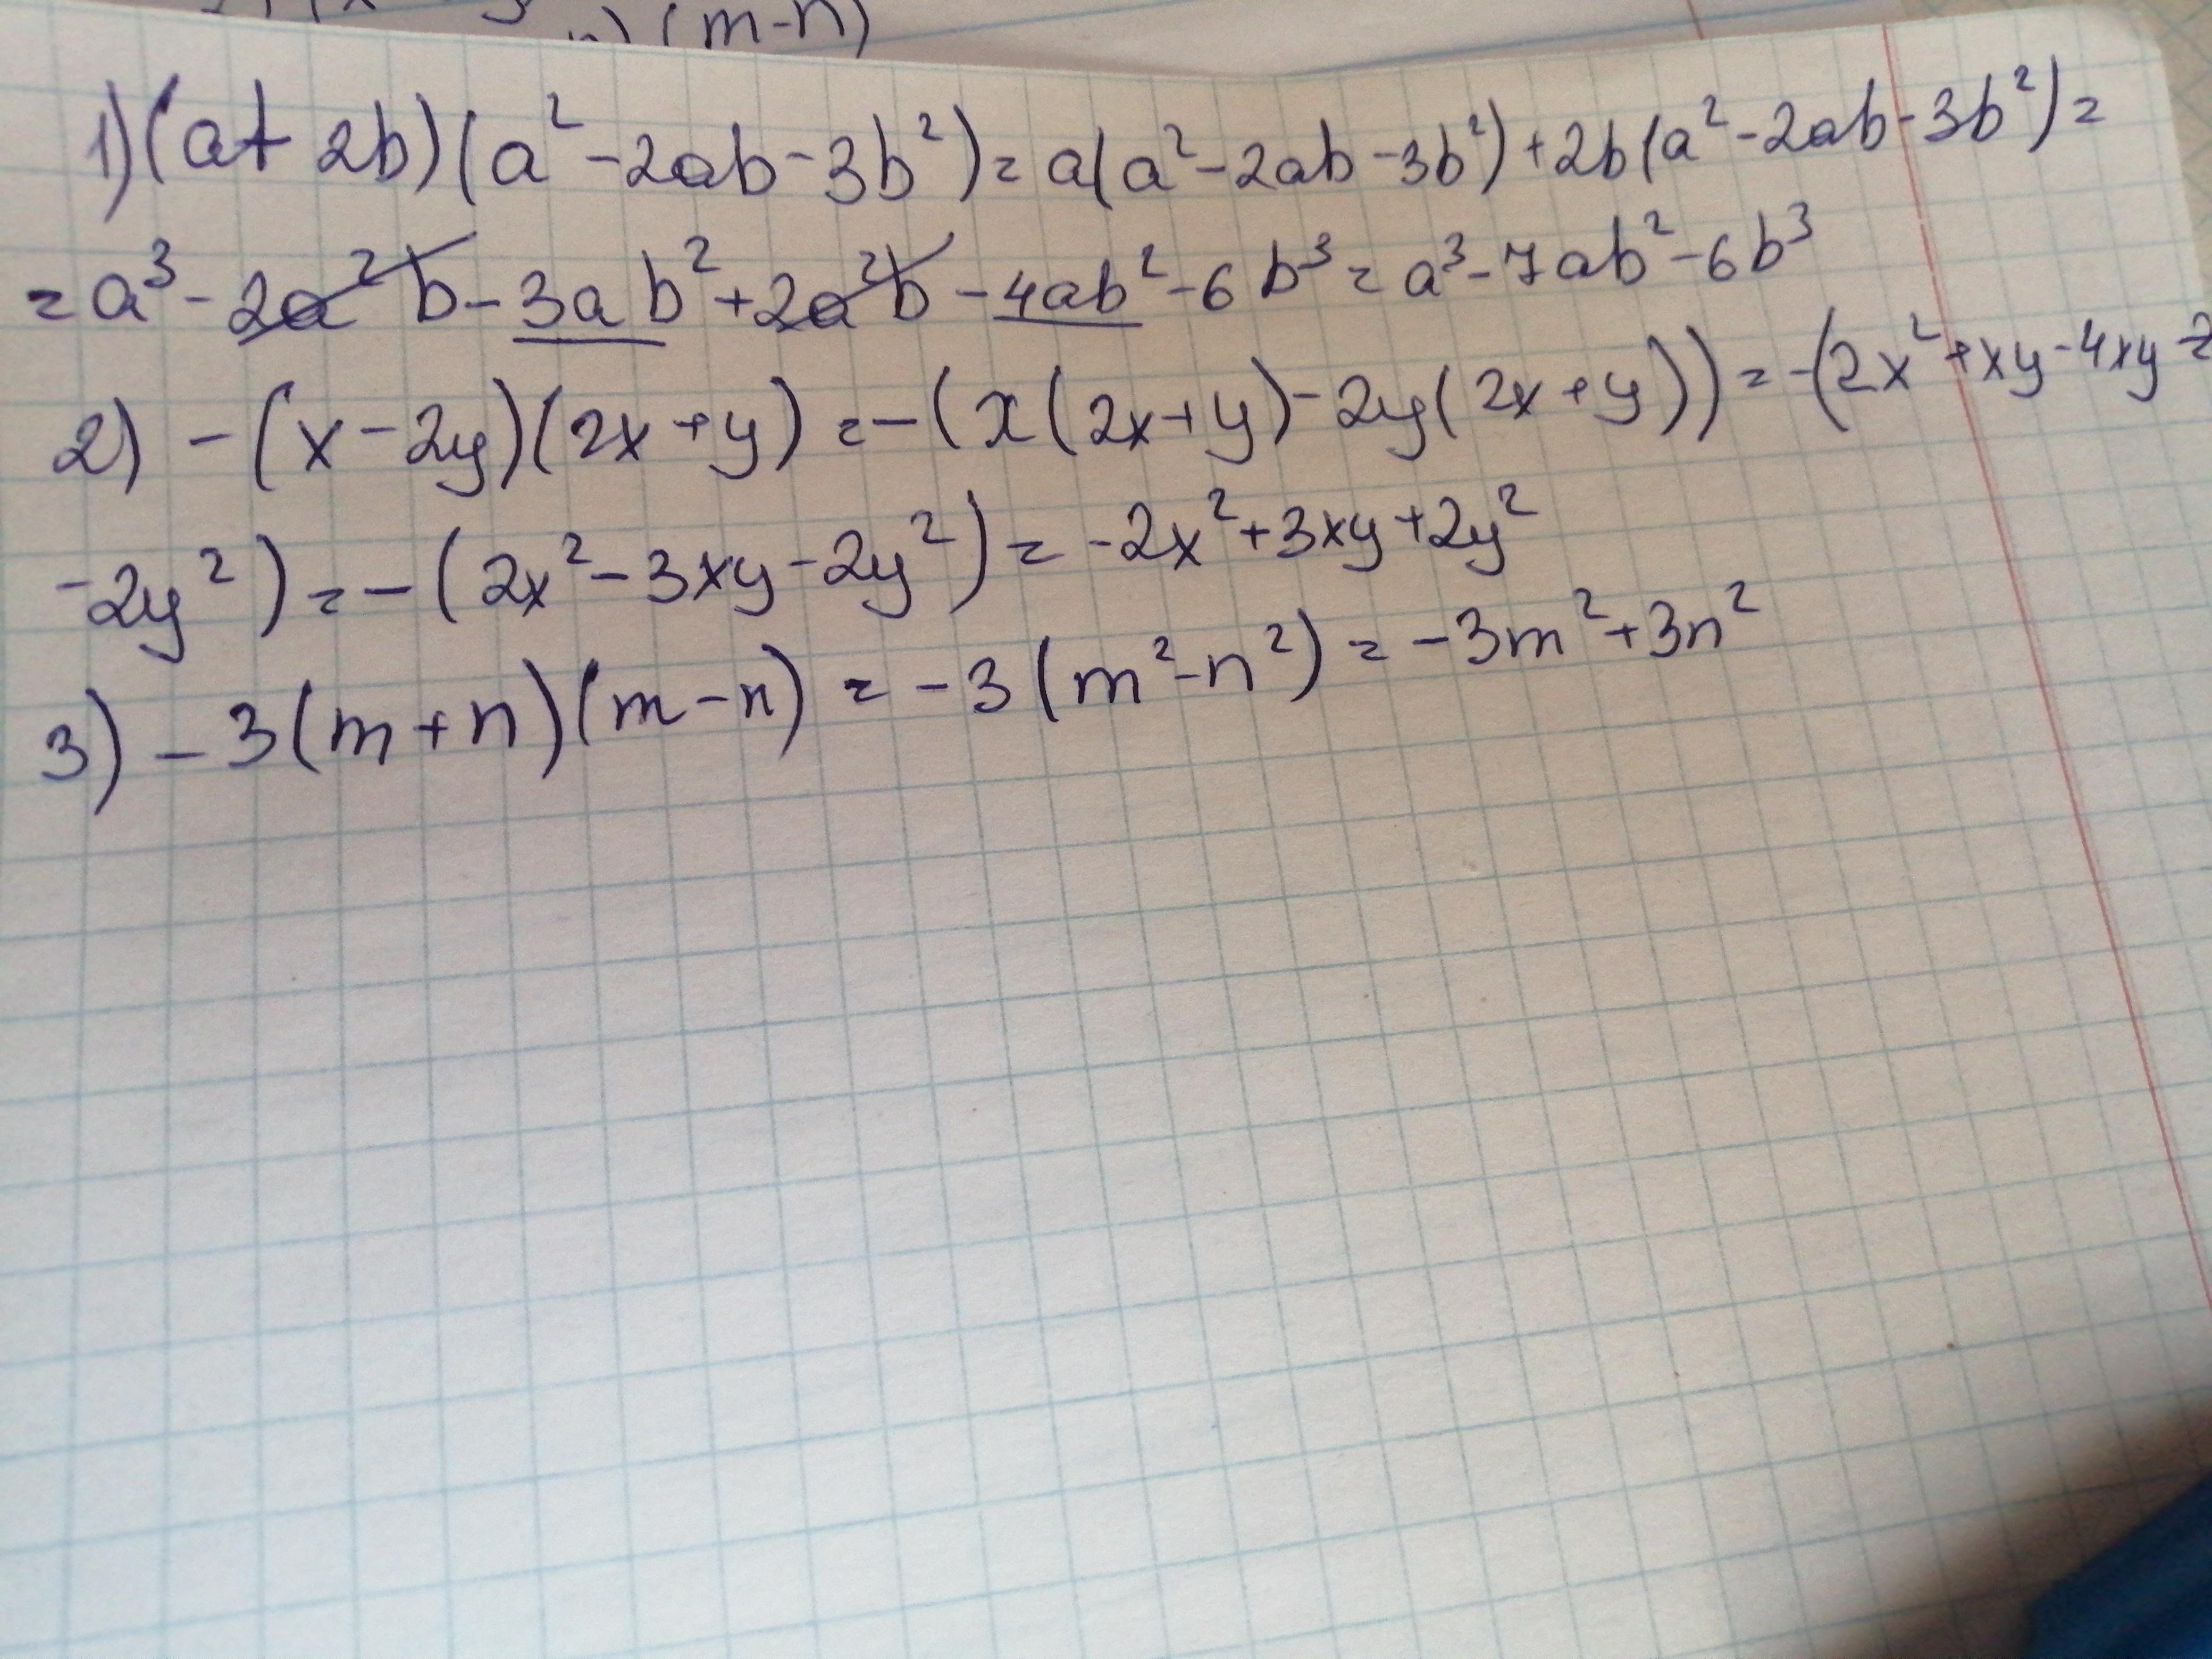 (m-n)
1) (a+2b)(a²-2ab-3b²)=a(a²-2ab-3b²)+2b(a²-2ab-3b²)=
=a³-2a²b-3ab²+2a²b-4ab²-6b³=a³-7ab²-6b³
2) -(x-2y)(2x+y)=-(x(2x+y)-2y(2x+y))=-(2x²+xy-4xy-
-2y²)=-(2x²-3xy-2y²)=-2x²+3xy+2y²
3) -3(m+n)(m-n)=-3(m²-n²)=-3m²+3n²